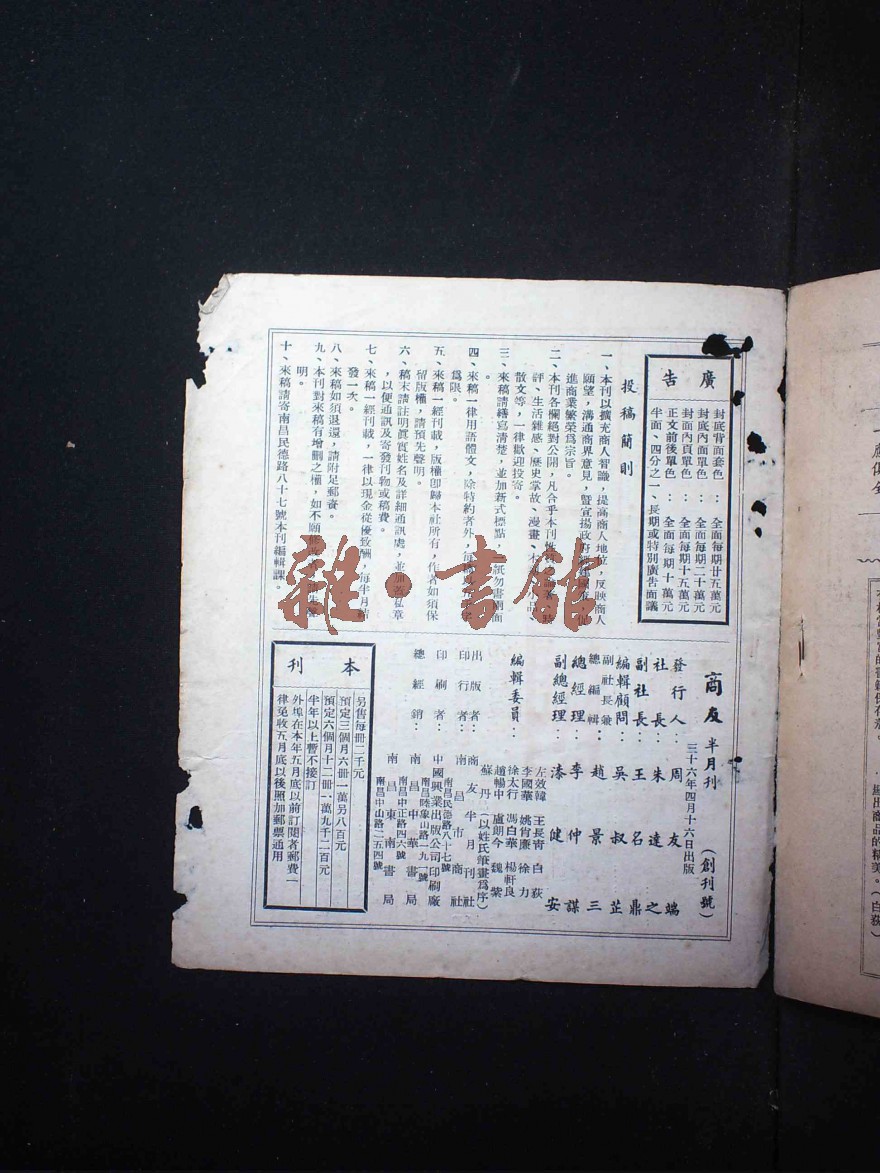 廣告
封底背面套色：全面每期廿五萬元
封底內面單色：全面每期二十萬元
封面內頁單色：全面每期十五萬元
正文前後單色：全面每期十萬元
半面、四分之一、長期或特別廣告面議
投稿簡則
一、本刊以擴充商人智識，提高商人地位，反映商人
願望，溝通商界意見，暨宣揚政府
進商業繁榮爲宗旨。
二、本刊各欄絕對公開，凡合乎本刊
評、生活雜感、歷史掌故、漫畫、木
散文等，一律歡迎投寄。
三、來稿請繕寫清楚，並加新式標點，一紙勿書兩面
。
四、來稿一律用語體文，除特約者外，每
爲限。
五、來稿一經刊載，版權卽歸本社所有，作者如須保
留版權，請預先聲明。
六、稿末請註明眞實姓名及詳細通訊處，並加蓋私章
，以便通訊及寄發刊物或稿費。
七、來稿一經刊載，一律以現金從優致酬，每半月結
發一次。
八、來稿如須退還，請附足郵資。
九、本刊對來稿有增刪之權，如不願
明。
十、來稿請寄南昌民德路八十七號本刊編輯課。
商友半月刊（創刊號）
三十六年四月十六日出版
發行人：周友端
社長：朱達之
副社長：王名鼎
編輯顧問：吳叔芷
副社長兼
總編輯：趙景三
總經理：李仲謀
副總經理：漆健安
編輯委員：
左效韓 王長青 白荻
李國華 姚肯廉 徐力
徐太行 馮白華 楊軒良
趙暢中 盧朗今 魏紫
蘇丹（以姓氏筆畫爲序）
出版者：商友半月刊社
印行者：南昌市商社
南昌民德路八十七號
印刷者：中國興業出版公司印刷廠
南昌陸象山路一九一號
總經銷：南昌中華書局
南昌中正路四六號
南昌東南書局
南昌中山路二五四號
本刊
另售每冊二千元
預定三個月六冊一萬另八百元
預定六個月十二冊一萬九千二百元
半年以上暫不接訂
外埠在本年五月底以前訂閱者郵費一
律免收五月底以後照加郵票通用
雜·書館
出商品的精美。（白荻）